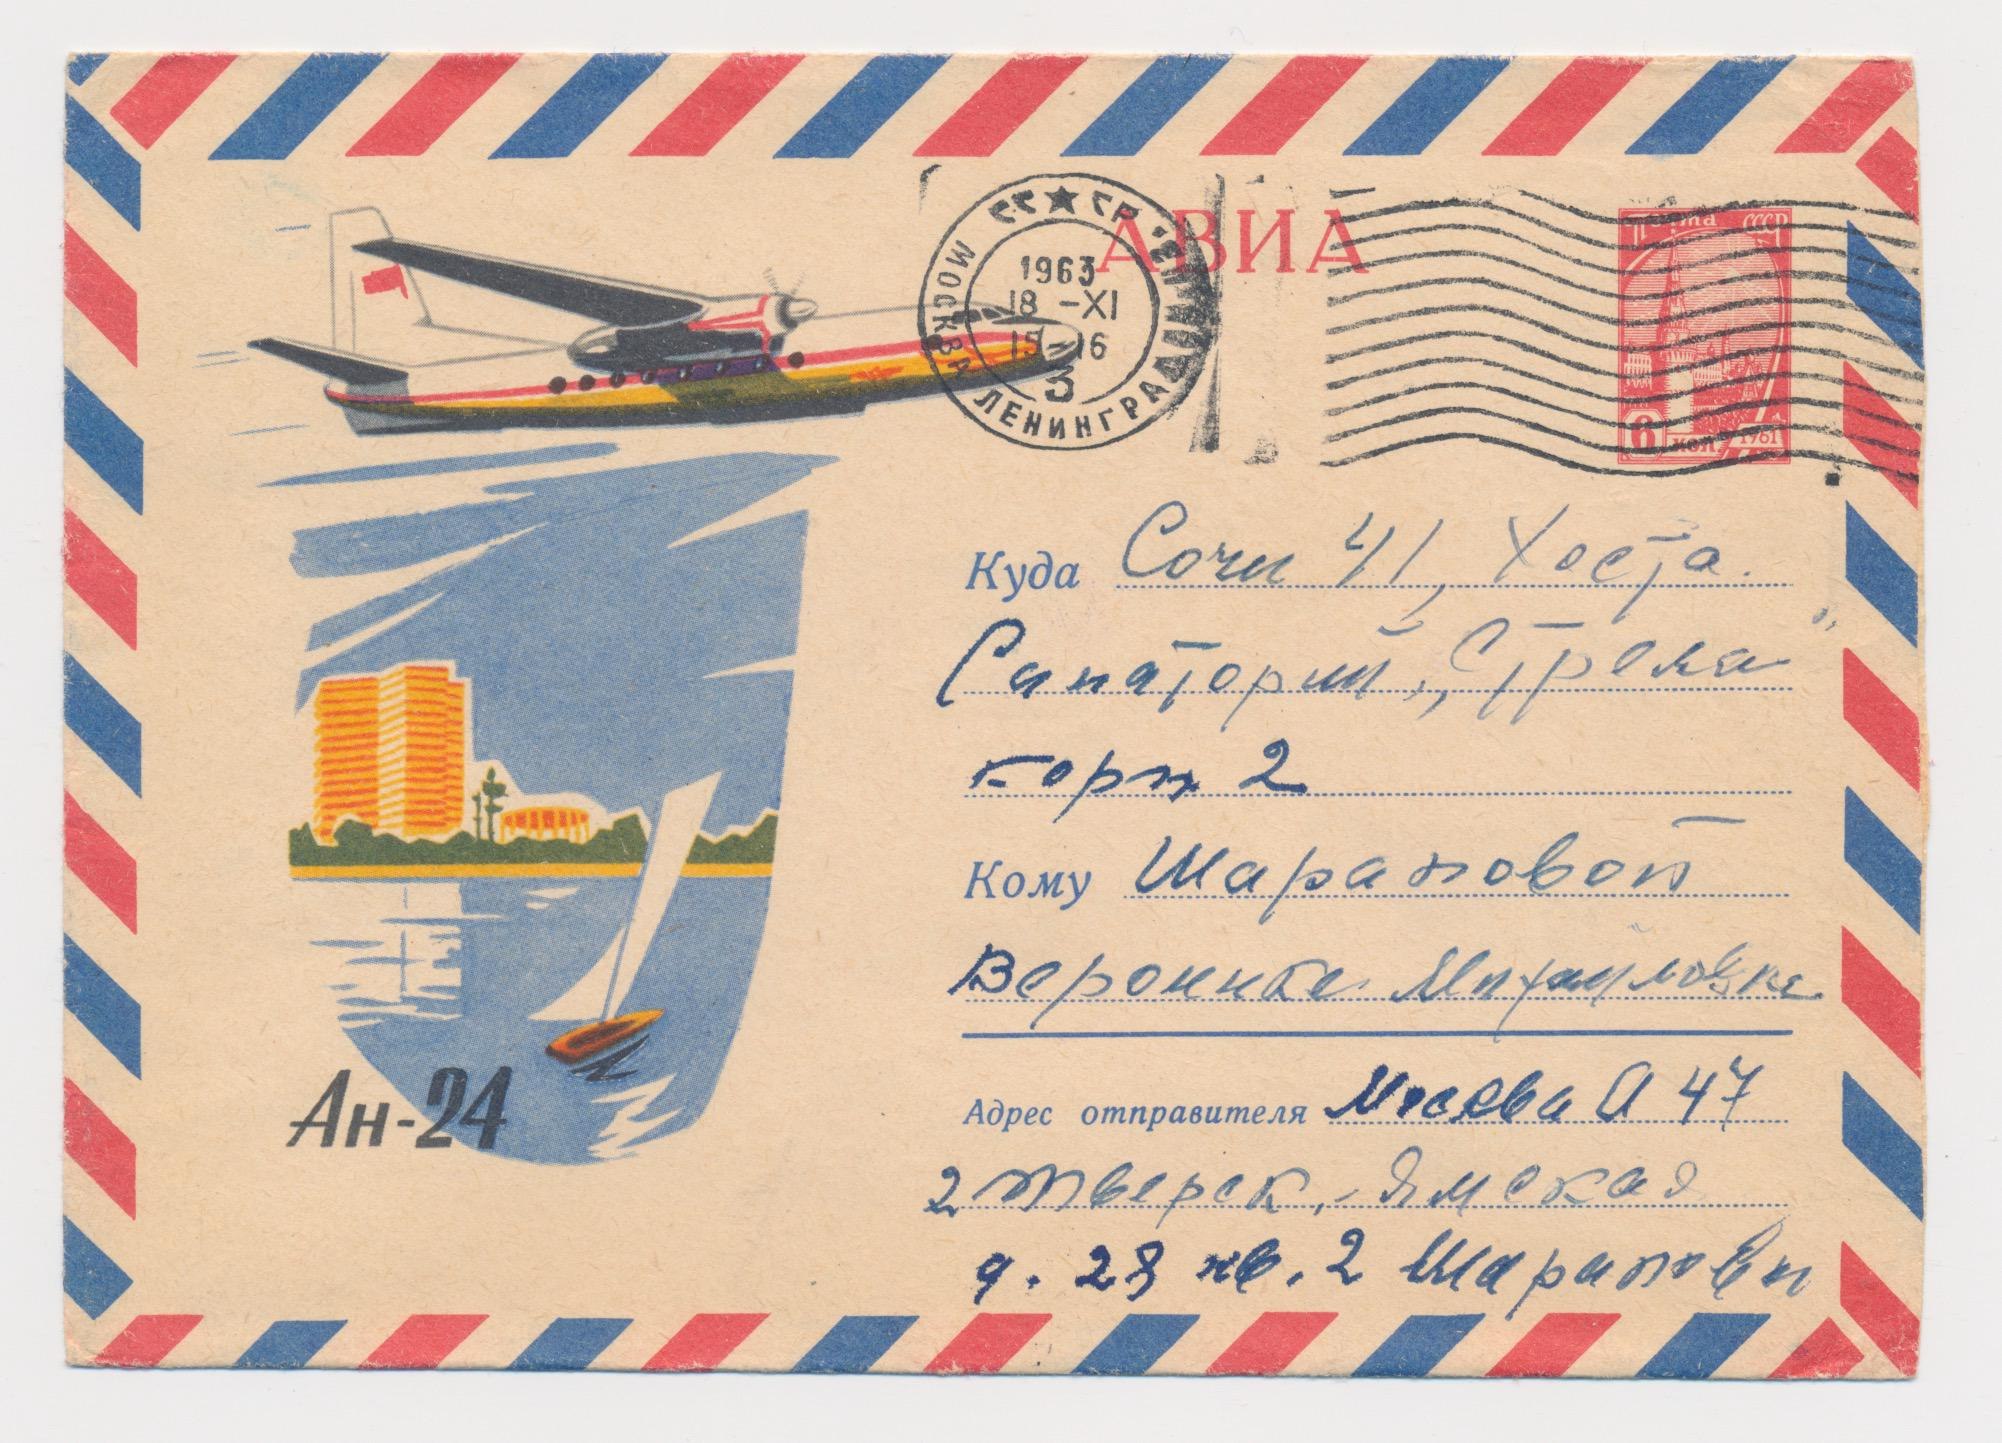 АВИА
Почта СССР
6 коп 1961
СССР
МОСКВА ЛЕНИНГРАДСК.
1963
18 -XI
15 16
3
Куда Сочи 41, Хоста.
Санаторий „Стрела“
корп 2
Кому Шараповой
Веронике Михайловне
Адрес отправителя Москва А 47
2 Тверск.-Ямская
д. 28 кв. 2 Шарапов
Ан-24